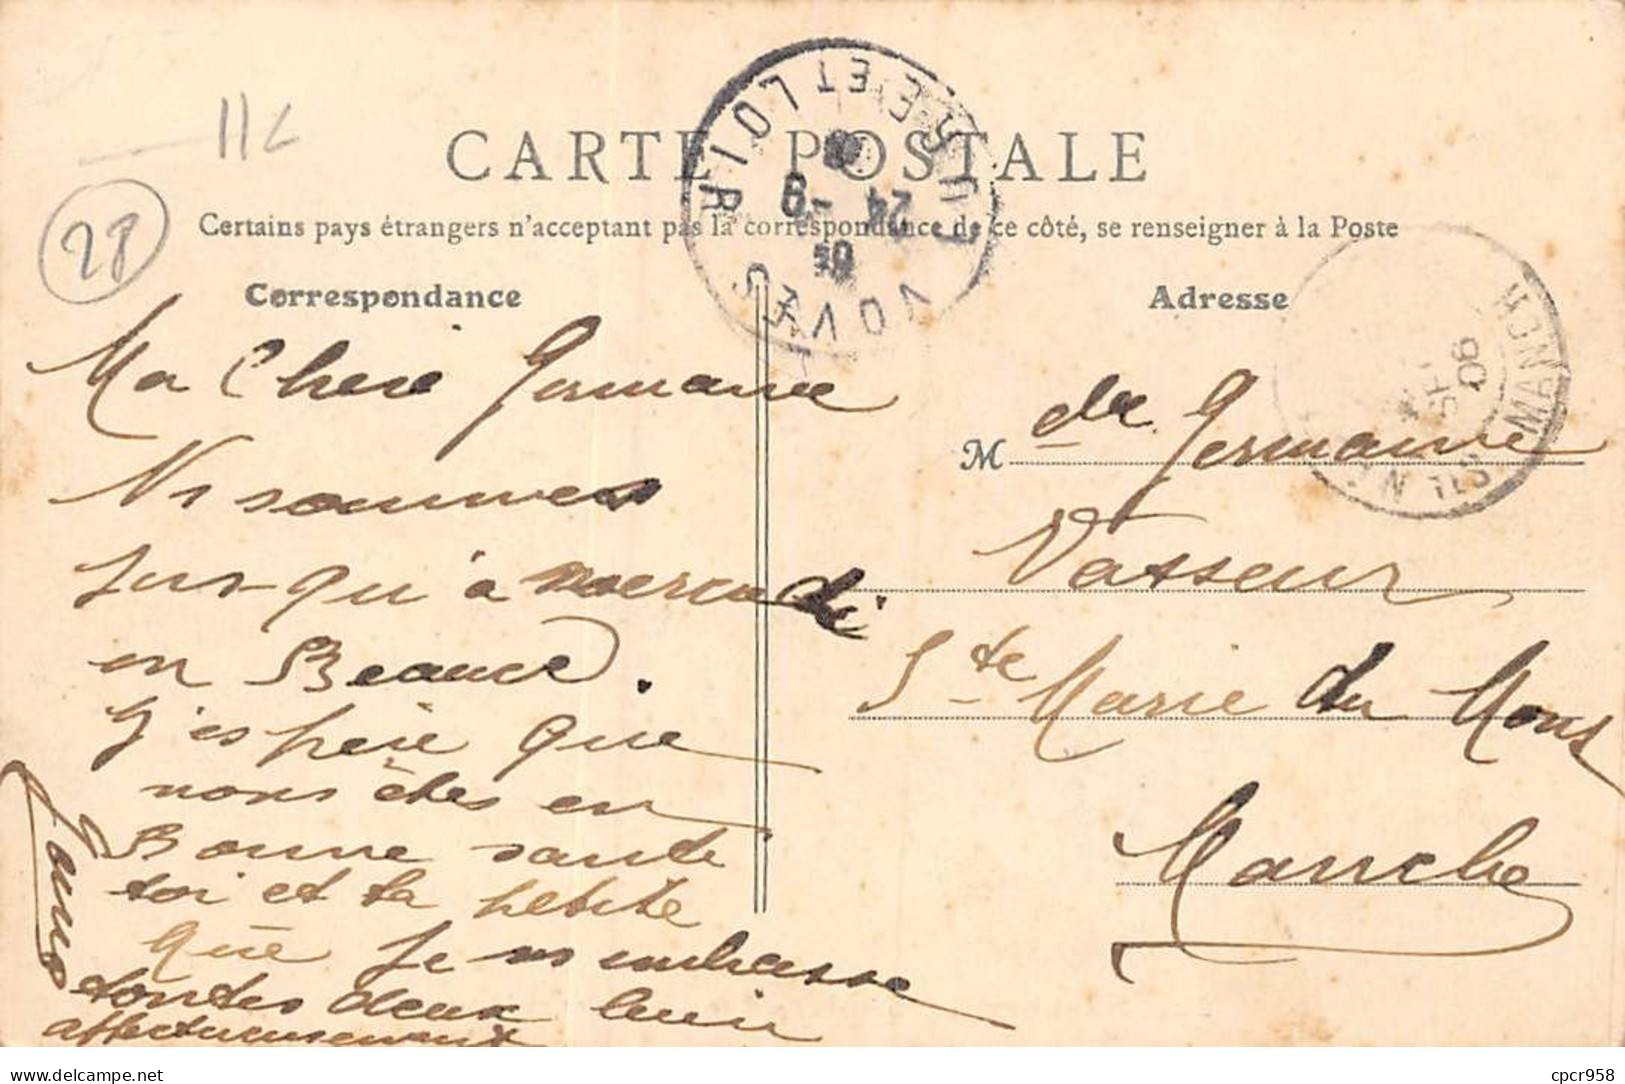 11c
28
CARTE POSTALE
Certains pays étrangers n'acceptant pas la correspondance de ce côté, se renseigner à la Poste
EURE ET LOIR
24 -9
06
VOVES
Correspondance
Ma Chere Germaine
Ns sommes
jus-qu'à mercredi
en Beauce.
J'espère que
vous êtes en
Bonne sante
toi et ta petite
que je vs embrasse
toutes deux bien
affectueusement
Adresse
MANCHE
06
M de Germaine
Vasseur
Ste Marie du Mont
Manche
cpcr958